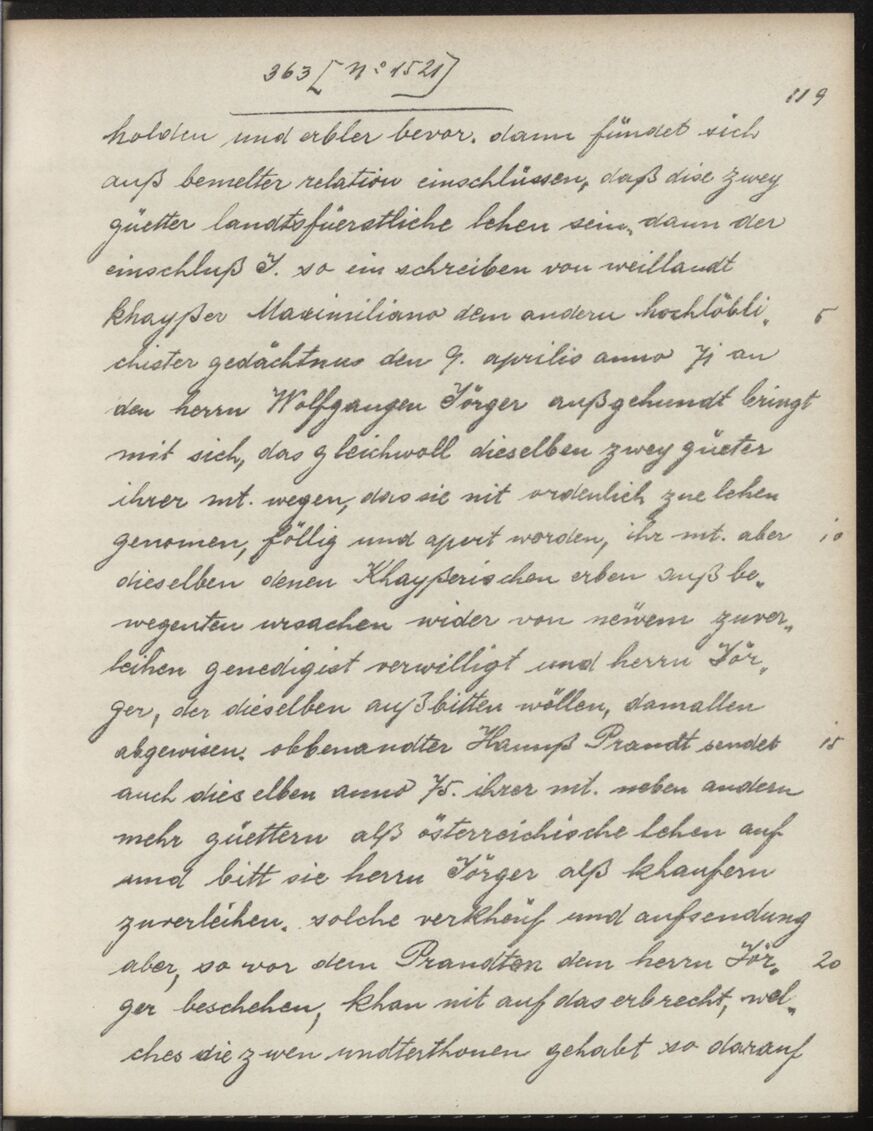 363 [N° 1521]
119
holden und erbler bevor. dann fündet sich
auß bemelter relation einschlüssen, daß dise zwey
güetter landtsfüerstliche lehen sein, dann der
einschluß J. so ein schreiben von weillandt
khayßer Maximiliano dem andern hochlöbli„ 5
chister gedächtnus den 9. aprilis anno 71 an
den herrn Wolfgangen Jörger außgehundt bringt
mit sich, das gleichwoll dieselben zwey güeter
ihrer mt. wegen, das sie nit ordenlich zue lehen
genomen, föllig und apert worden, ihr mt. aber 10
dieselben denen Khayßerischen erben auß be„
wegenten ursachen wider von neẅem zuver„
leihen genedigist verwilligt und herrn Jör„
ger, der dieselben außbitten wöllen, damallen
abgewisen. obbenandter Hannß Prandt sendet 15
auch dieselben anno 75. ihrer mt. neben andern
mehr güettern alß österreichische lehen auf
und bitt sie herrn Jörger alß khaufern
zuverleihen. solche verkhöuf und aufsendung
aber, so vor dem Prandten dem herrn Jör„ 20
ger beschehen, khan nit auf das erbrecht, wel„
ches die zwen undterthonen gehabt so darauf